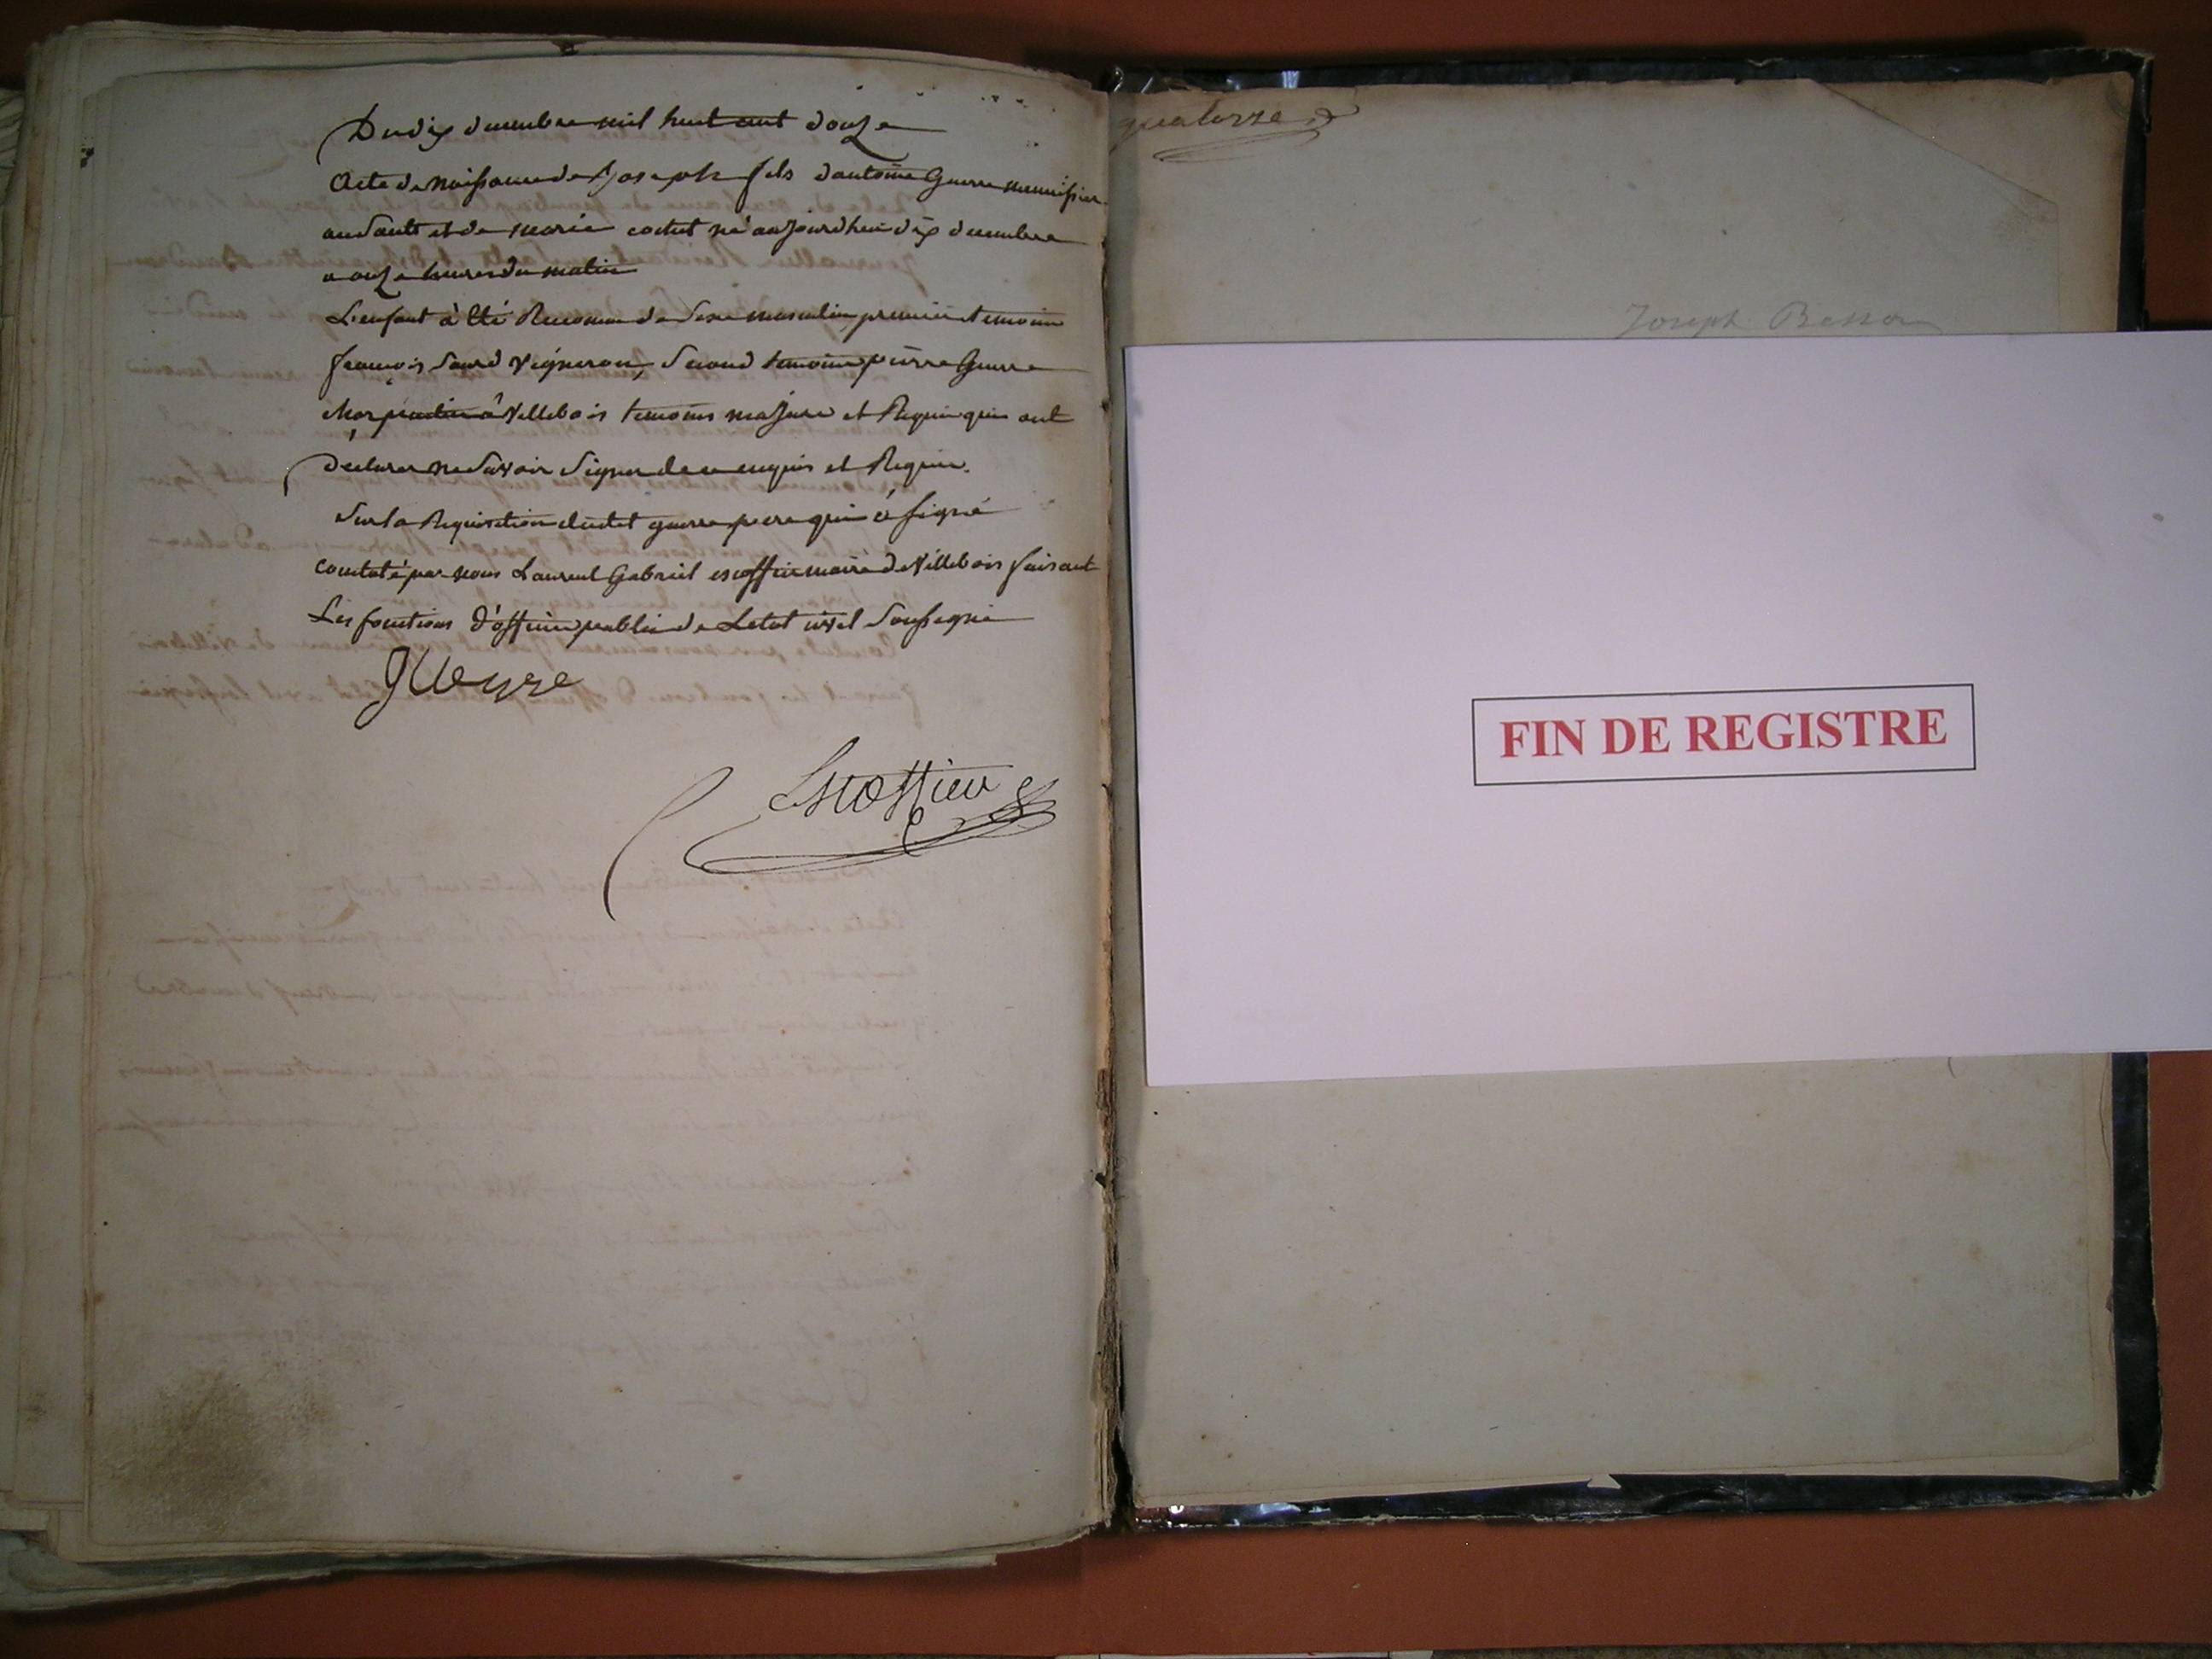 Du dix decembre mil huit cent douze
Acte de naissance de Joseph fils d'antoine Guerre menuisier
au Sault et de marie cottet né aujourdhui dix decembre
a onze heures du matin
L'enfant à été Reconnu de Sexe masculin, premier temoin
françois Sourd Vigneron, Second temoin pierre Guerre
charpentier à Villebois temoins majeurs et Requis qui ont
declarer ne Savoir Signer de ce enquis et Requis.
Sur la Requisition dudit guerre pere qui à signé
Constaté par nous Laurent Gabriel escoffier maire de Villebois faisant
Les fonctions d'officier public de Letat civil Soussigné
guerre
Escoffier
quatorze
Joseph Besson
FIN DE REGISTRE